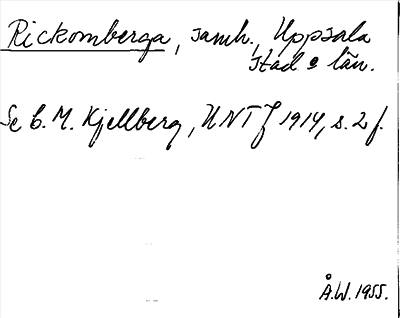 Rickomberga, samh., Uppsala
stad o län.
Se C. M. Kjellberg, UNT J 1914, s. 2 f.
Å.W. 1955.